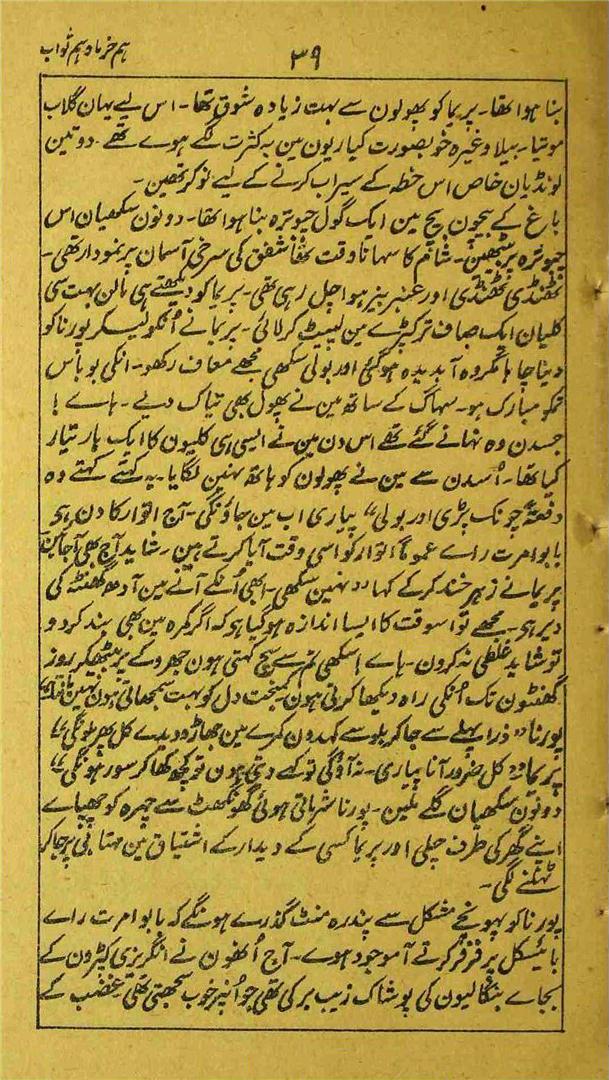 ہم خرما و ہم ثواب
۳۹
بنا ہوا تھا۔ پریما کو پھولون سے بہت زیادہ شوق تھا۔ اس لیے یہان گلاب
موتیا۔ بیلا وغیرہ خوبصورت کیاریون مین بہ کثرت لگے ہوے تھے۔ دو تین
لونڈیان خاص اس خطہ کے سیراب کرنے کے لیے نوکر تھین۔
باغ کے بیچون بیچ مین ایک گول چبوترہ بنا ہوا تھا۔ دونون سکھیان اس
چبوترہ پر بیٹھین۔ شام کا سہانا وقت تھا شفق کی سرخی آسمان پر نمودار تھی۔
ٹھنڈی ٹھنڈی اور عنبر بیز ہوا چل رہی تھی۔ پریما کو دیکھتے ہی مالن بہت سی
کلیان ایک صاف تر کپڑے مین لپیٹ کر لائی۔ پریما نے اُنکو لیکر پورنا کو
دینا چاہا مگر وہ آبدیدہ ہو گئی اور بولی سکھی مجھے معاف رکھو۔ انکی بو باس
تمکو مبارک ہو۔ سہاگ کے ساتھ مین نے پھول بھی تیاگ دیے۔ ہاے!
جسدن وہ نہانے گئے تھے اس دن مین نے ایسی ہی کلیون کا ایک ہار تیار
کیا تھا۔ اُسدن سے مین نے پھولون کو ہاتھ نہین لگایا۔ یہ کہتے کہتے وہ
دفعتہً چونک پڑی اور بولی ”پیاری اب مین جاؤنگی۔ آج اتوار کا دن ہی
بابو امرت راے عموماً اتوار کو اسی وقت آیا کرتے ہین۔ شاید آج بھی آ جاین“
پریما نے زہرخند کرکے کہا ”نہین سکھی۔ ابھی اُنکے آنے مین آدھ گھنٹہ کی
دیر ہی۔ مجھے تو اسوقت کا ایسا اندازہ ہو گیا ہو کہ اگر کمرہ مین بھی بند کر دو
تو شاید غلطی نہ کرون۔ ہاے سکھی تم سے سچ کہتی ہون جھروکے پر بیٹھکر روز
گھنٹون تک اُنکی راہ دیکھا کرتی ہون۔ کمبخت دل کو بہت سمجھاتی ہون نہین مانتا“
پورنا ”ذرا پہلے سے جا کر بلو سے کہدون کمرے مین جھاڑو دیدے کل پھر ملونگی“
پریما ”کل ضرور آنا پیاری۔ نہ آؤگی تو کہے دیتی ہون تو کچھ کھا کر سو رہونگی“
دونون سکھیان گلے ملین۔ پورنا شرماتی ہوئی گھونگھٹ سے چہرہ کو چھپاے
اپنے گھر کی طرف چلی اور پریما کسی کے دیدار کے اشتیاق مین مہتابی پر جا کر
ٹہلنے لگی۔
پورنا کو پہونچے مشکل سے پندرہ منٹ گذرے ہونگے کہ بابو امرت راے
بائیسکل پر فر فر کرتے آ موجود ہوے۔ آج اُنھون نے انگریزی کپڑون کے
بجاے بنگالیون کی پوشاک زیب بر کی تھی جو اُنپر خوب سجھتی تھی غضب کے